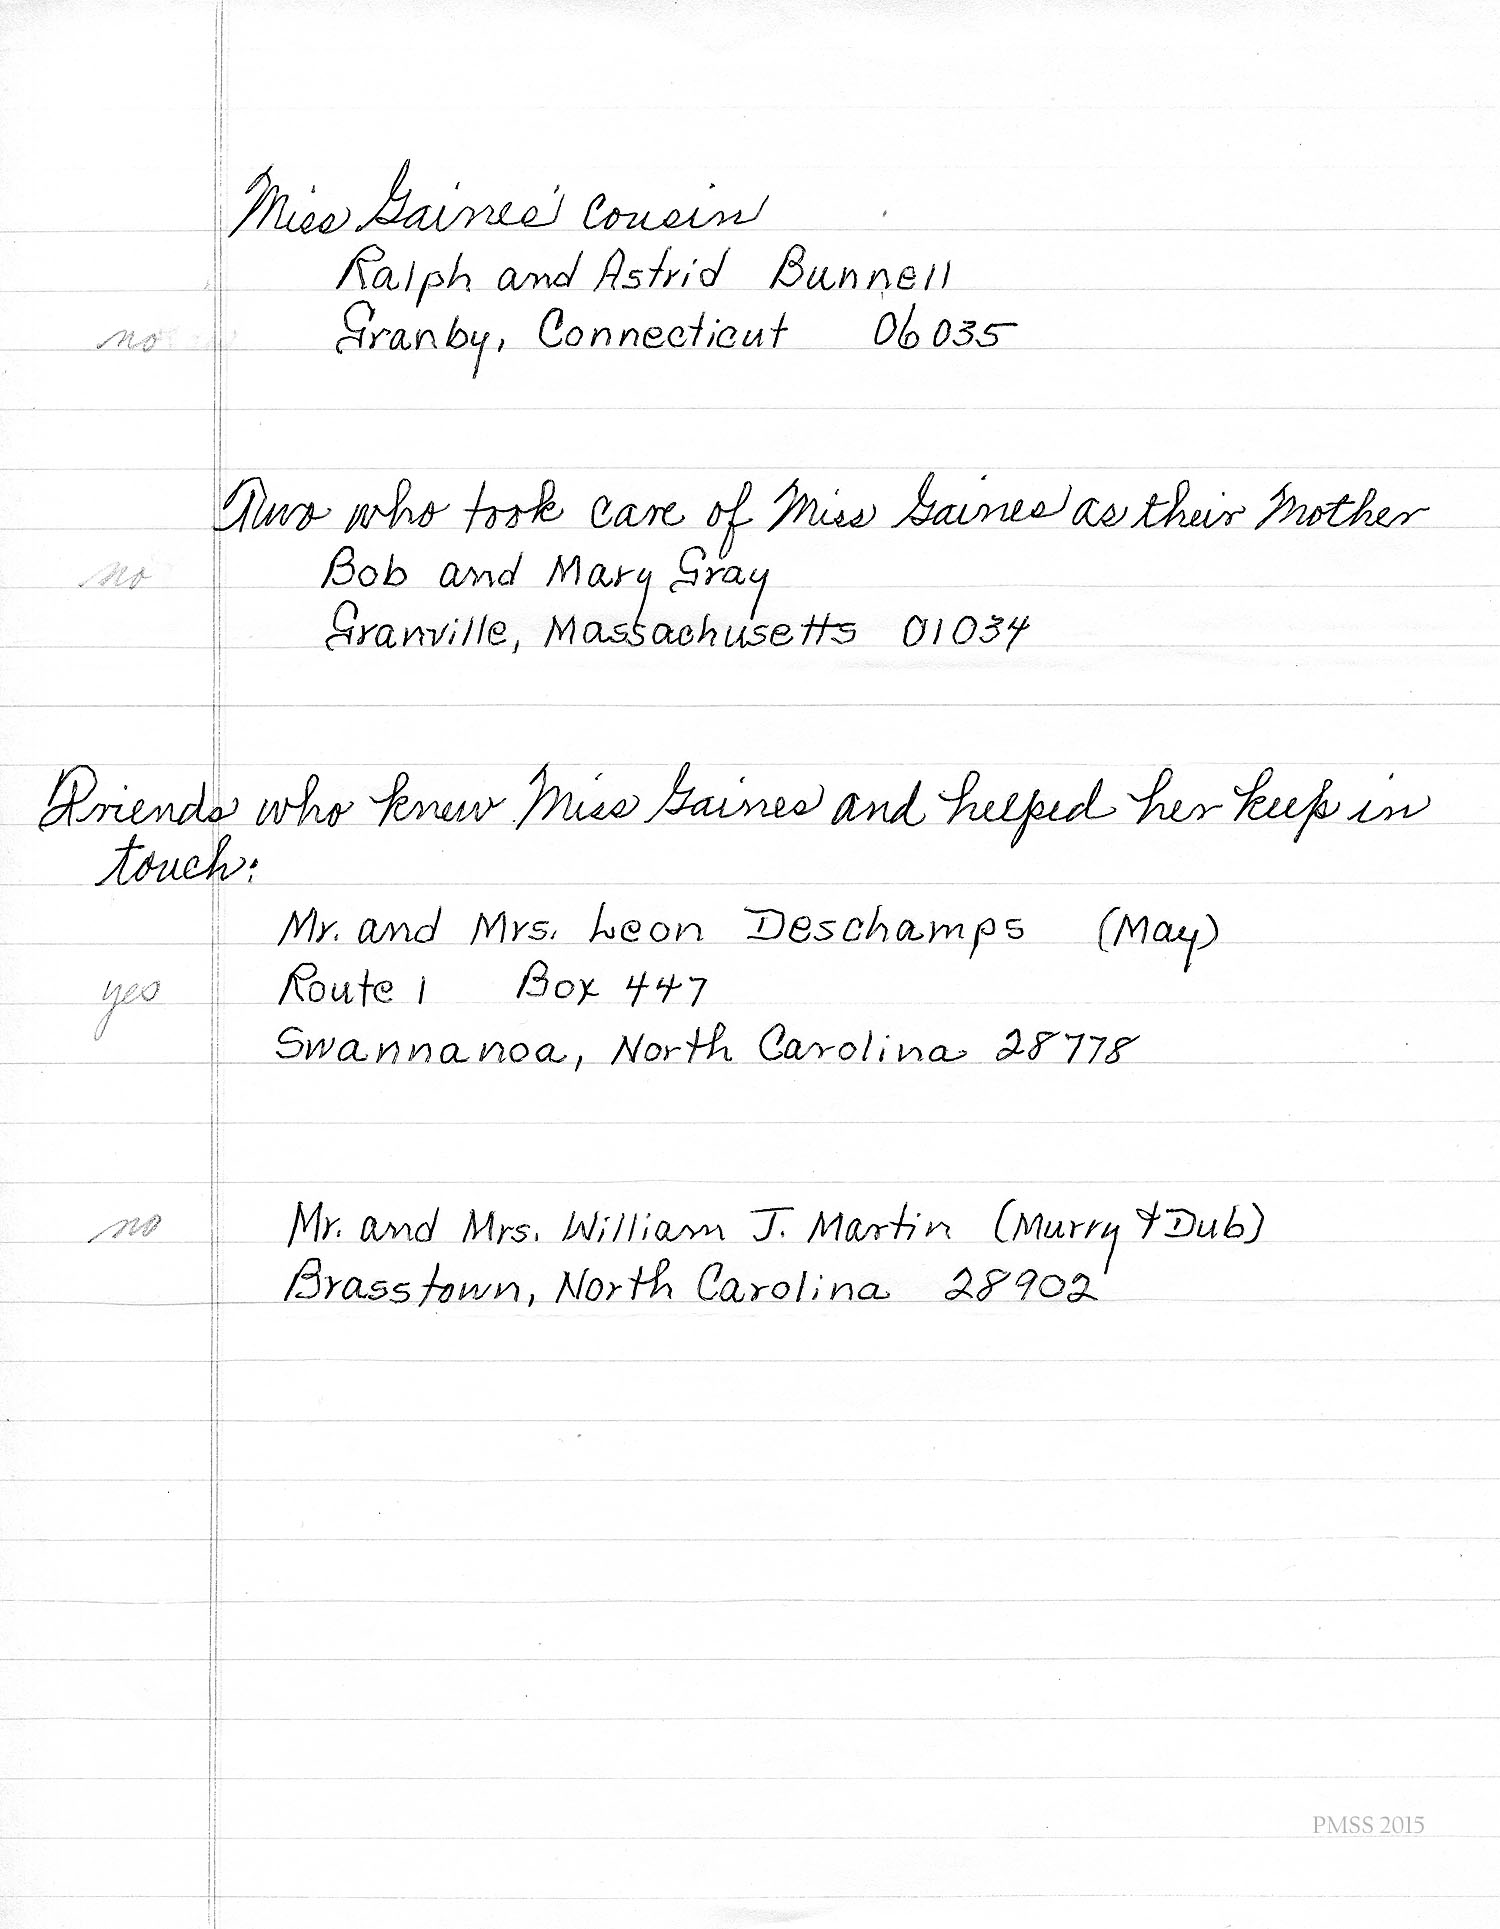 Miss Gaines' Cousin
Ralph and Astrid Bunnell
no Granby, Connecticut 06035
Two who took care of Miss Gaines as their Mother
no Bob and Mary Gray
Granville, Massachusetts 01034
Friends who knew Miss Gaines and helped her keep in
touch:
Mr. and Mrs. Leon Deschamps (May)
yes Route 1 Box 447
Swannanoa, North Carolina 28778
no Mr. and Mrs. William J. Martin (Murry & Dub)
Brasstown, North Carolina 28902
PMSS 2015